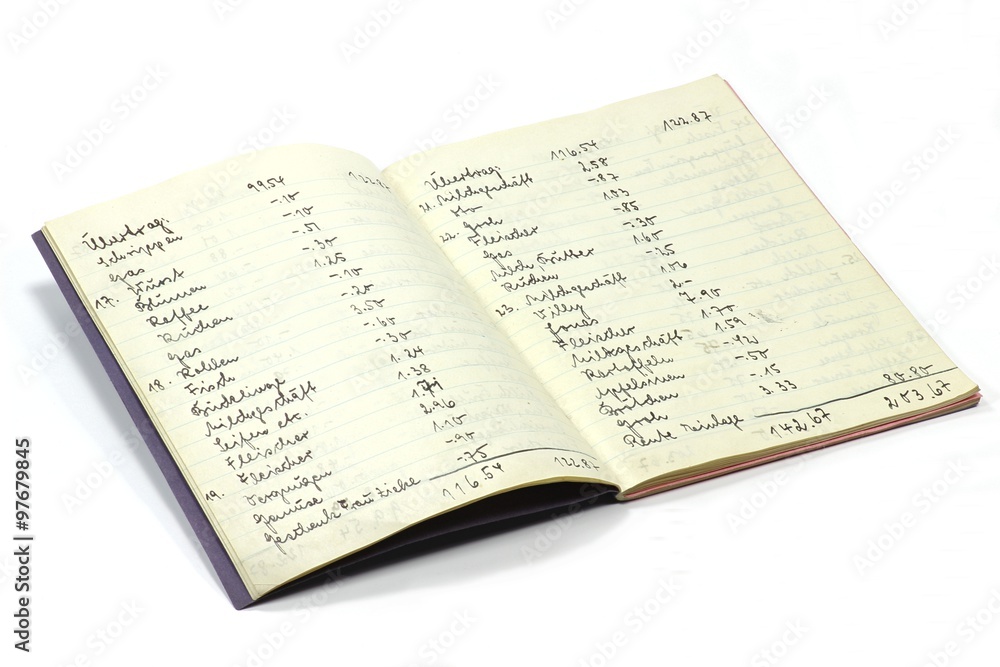 Übertrag. 99.54 122.87
Schrippen -.10
Gas -.10
17. Wurst -.51
Blumen -.30
Kaffee 1.25
Kuchen -.10
Gas -.20
18. Kohlen 3.50
Fisch -.60
Bücklinge -.30
Milchgeschäft 1.24
Seifen etc. 1.38
Fleischer
Fleischer 2.96
19. Vergnügen 1.10
Gemüse -.90
Geschenk Frau Liebe -.75
116.54 122.87
Übertrag. 116.54 122.87
21. Milchgeschäft 2.58
-.87
22. 1.03
Fleischer -.85
Gas -.30
Milch, Butter 1.60
Kuchen -.25
23. Milchgeschäft 1.06
Willy 2.-
7.90
Fleischer 1.70
Milchgeschäft 1.59
Kartoffeln
Apfelsinen -.50
Brötchen -.15
3.33
Rente 80.80
142.67 203.67
Adobe Stock
Adobe Stock | #97679845